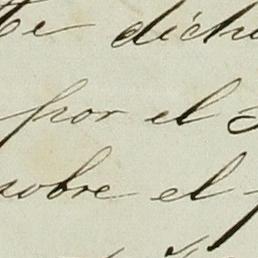 te dich
por el
sobre el